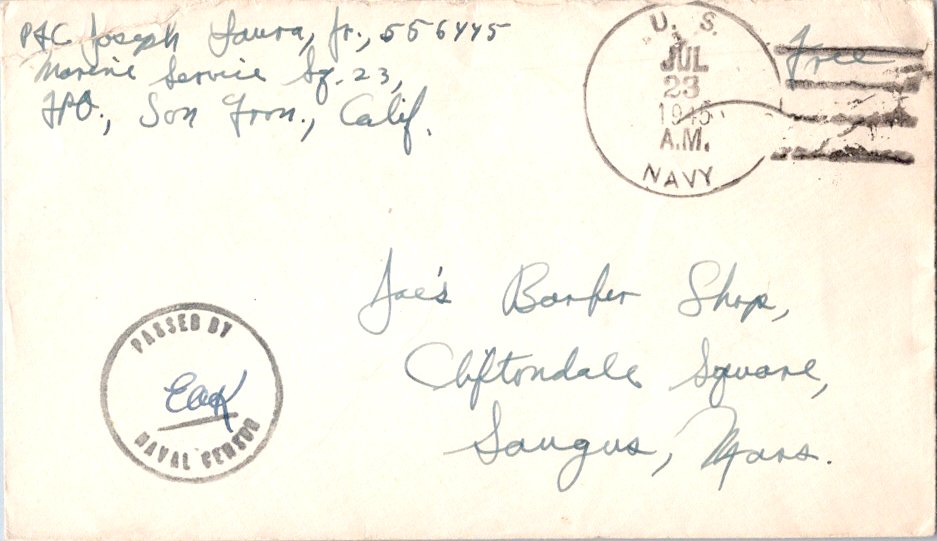 Pfc Joseph Laura, Jr., 556445
Marine Service Sq. 23,
FPO., San Fran., Calif.
U. S.
JUL
23
1945
A.M.
NAVY
Free
Joe's Barber Shop,
Cliftondale Square,
Saugus, Mass.
PASSED BY
NAVAL CENSOR